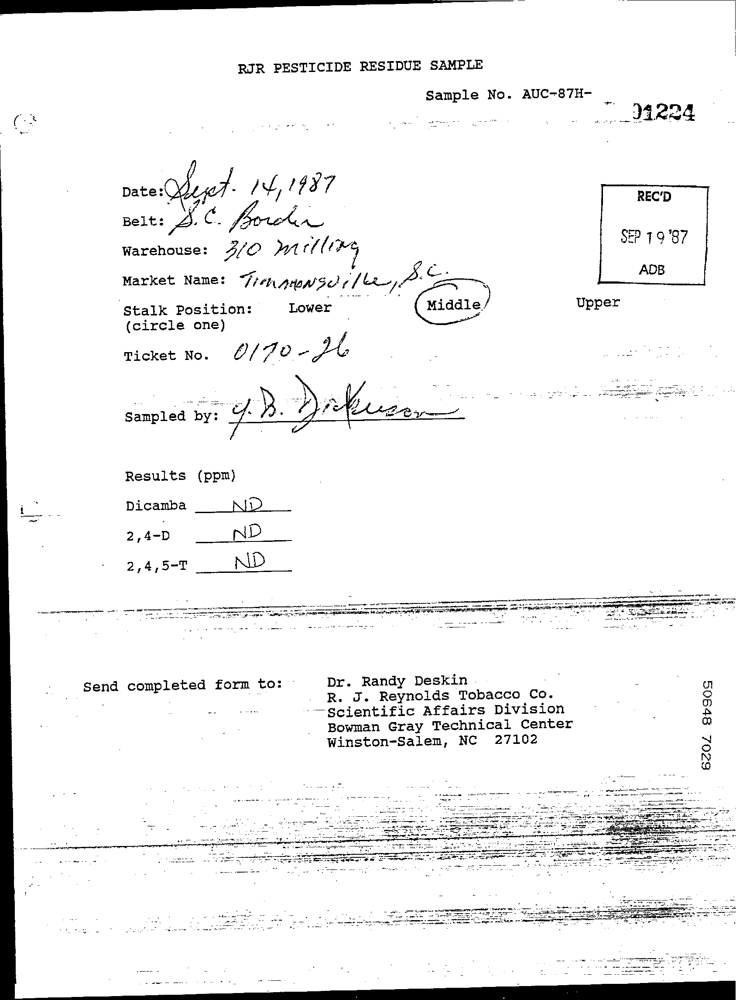 RJR PESTICIDE RESIDUE SAMPLE
Sample No. AUC-87H-
01224
Date: Sept. 14, 1987
REC'D
Belt: S.C. Border
SEP 19 '87
Warehouse: 310 Milling
ADB
Market Name: Timmonsville, S.C.
Stalk Position: Lower Middle Upper
(circle one)
Ticket No. 0170-26
Sampled by: Y.B. Dickerson
Results (ppm)
Dicamba ND
2,4-D ND
2,4,5-T ND
Send completed form to: Dr. Randy Deskin
R. J. Reynolds Tobacco Co.
Scientific Affairs Division
Bowman Gray Technical Center
Winston-Salem, NC 27102
50648 7029